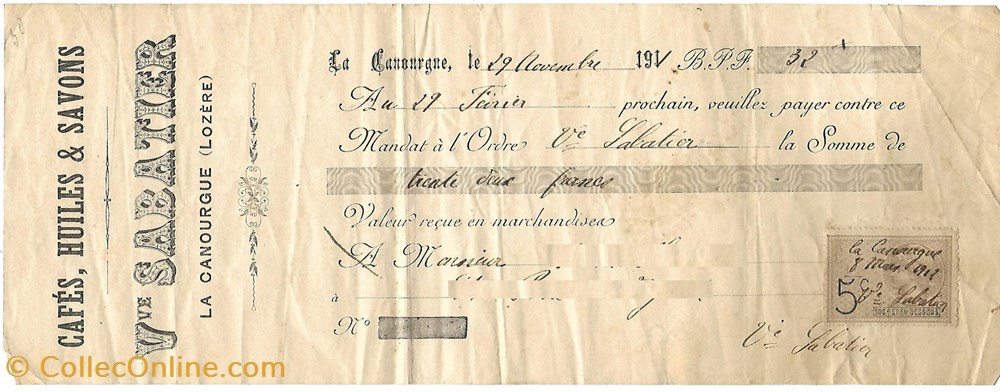 30
CAFÉS, HUILES & SAVONS
Vve SABATIER
LA CANOURGUE (LOZÈRE)
La Canourgue, le 29 Novembre 1911 B.P.F. 32
Au 29 Février prochain, veuillez payer contre ce
Mandat à l'Ordre Ve Sabatier la Somme de
trente deux francs
Valeur reçue en marchandises
A Monsieur
à
No
La Canourgue
8 Mars
5c Ve Sabatier
Ve Sabatier
© CollecOnline.com